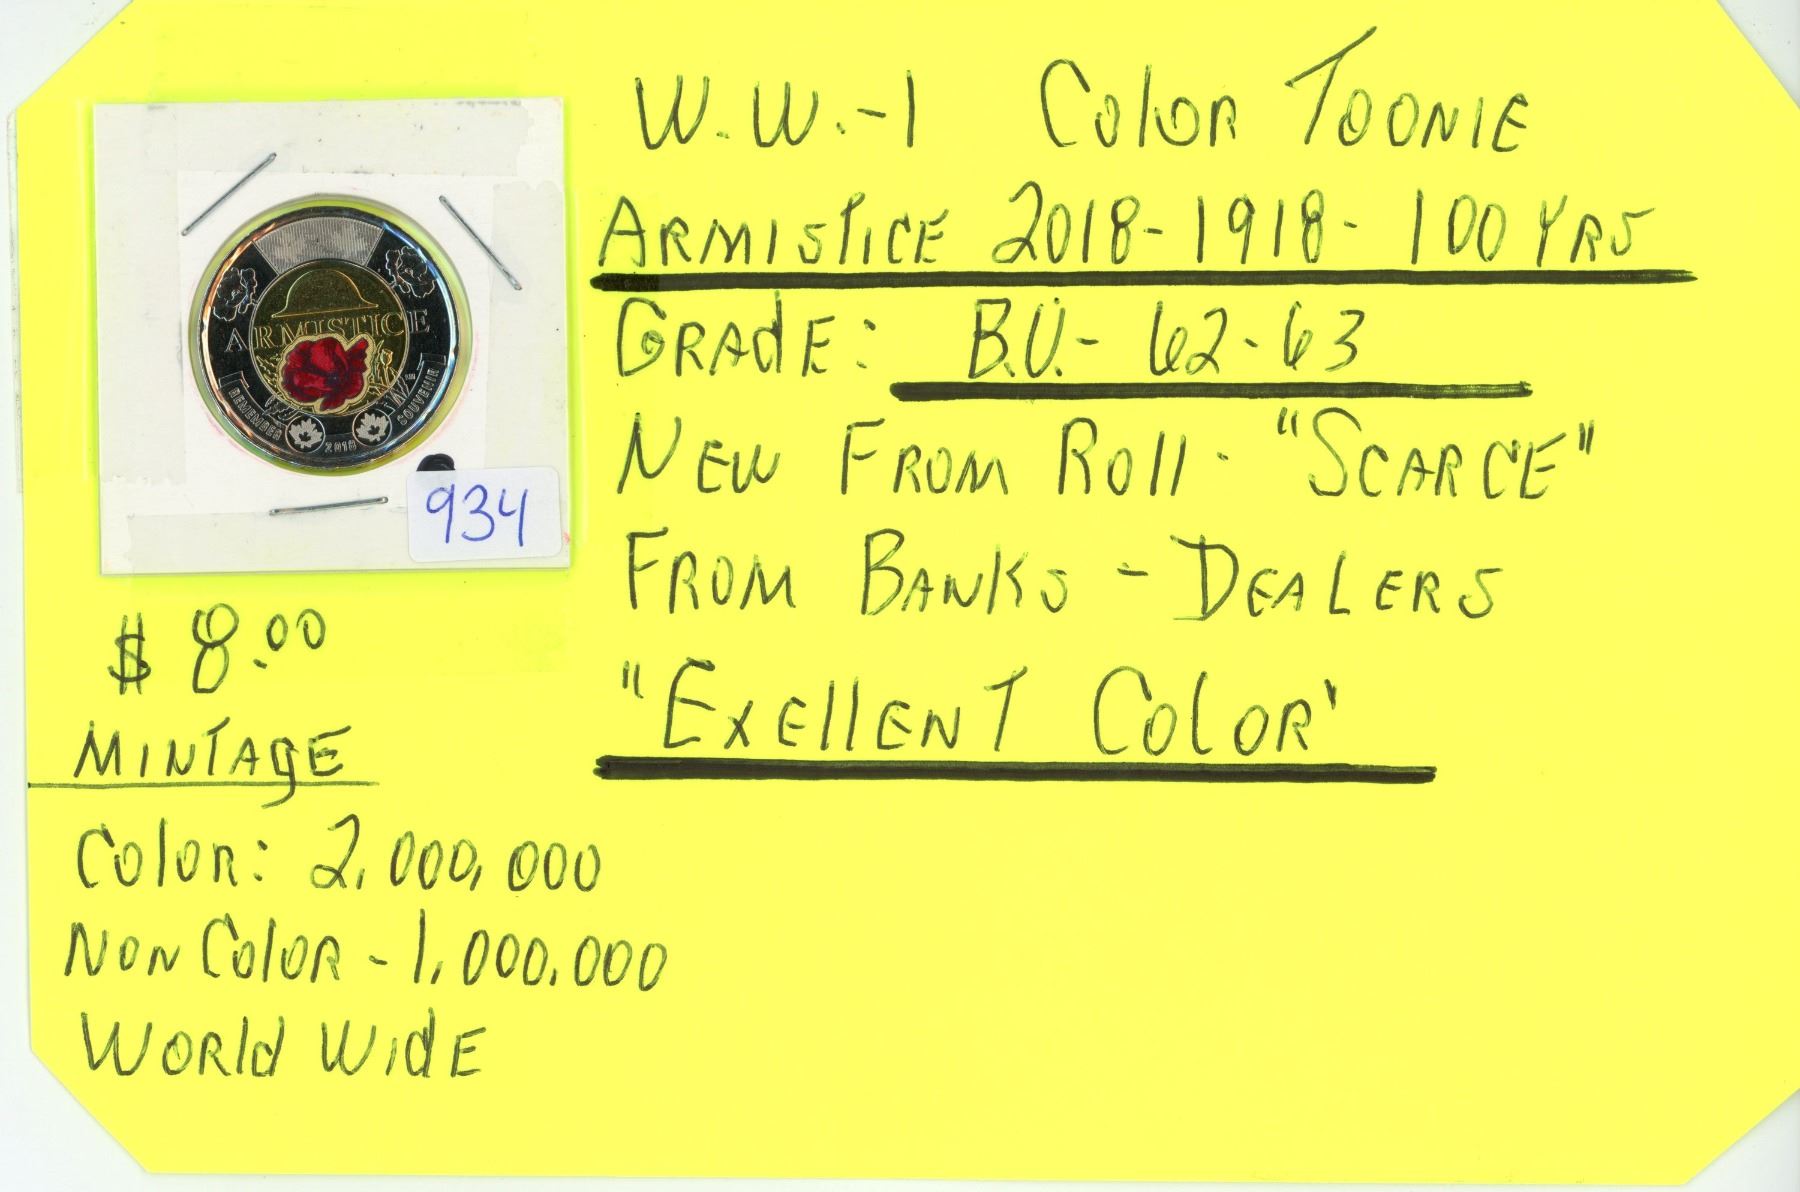 W.W.-1 Color Toonie
Armistice 2018-1918-100 Yrs
Grade: B.U.- 62-63
New From Roll - "Scarce"
From Banks - Dealers
"Exellent Color"
ARMISTICE
REMEMBER
2018
SOUVENIR
934
$8.00
Mintage
Color: 2,000,000
Non Color - 1,000,000
World Wide